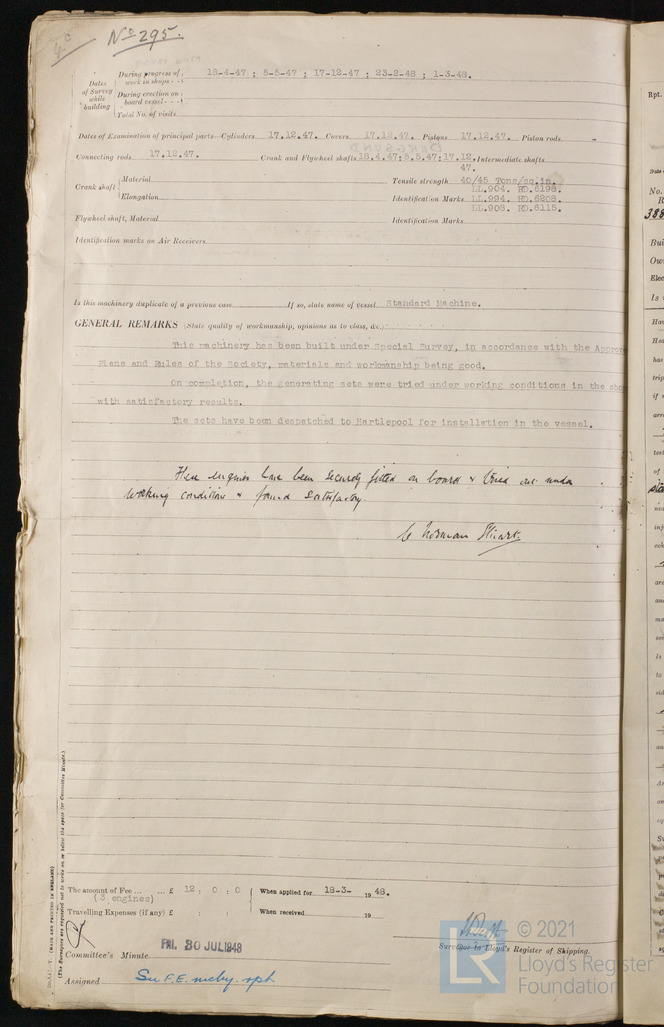 No 295.
Dates of Survey while building
During progress of work in shops - - 18-4-47 ; 5-5-47 ; 17-12-47 ; 23-2-48 ; 1-3-48.
During erection on board vessel - - -
Total No. of visits
Dates of Examination of principal parts—Cylinders 17.12.47. Covers 17.12.47. Pistons 17.12.47. Piston rods -
Connecting rods 17.12.47. Crank and Flywheel shafts 18.4.47;5.5.47;17.12. Intermediate shafts
47.
Crank shaft Material Tensile strength 40/45 Tons/sq.in.
LL.904. HD.6198.
Elongation Identification Marks LL.994. HD.6208.
LL.908. HD.6115.
Flywheel shaft, Material Identification Marks
Identification marks on Air Receivers
Is this machinery duplicate of a previous case If so, state name of vessel Standard Machine.
GENERAL REMARKS (State quality of workmanship, opinions as to class, &c.)
This machinery has been built under Special Survey, in accordance with the Approv
Plans and Rules of the Society, materials and workmanship being good.
On completion, the generating sets were tried under working conditions in the sho
with satisfactory results.
The sets have been despatched to Hartlepool for installation in the vessel.
These engines have been securely fitted on board & tried out under
working conditions & found satisfactory
C Norman Stuart
The amount of Fee ... ... £ 12 : 0 : 0 When applied for 18-3- 19 48.
(3 engines)
Travelling Expenses (if any) £ : : When received 19
Surveyor to Lloyd's Register of Shipping.
FRI. 30 JUL 1948
Committee's Minute
Assigned See F.E. mchy. rpt.
(MADE AND PRINTED IN ENGLAND)
(The Surveyors are requested not to write on or below the space for Committee Minute.)
Rpt.
No.
Bui
Own
Elec
Is
© 2021
Lloyd's Register
Foundation